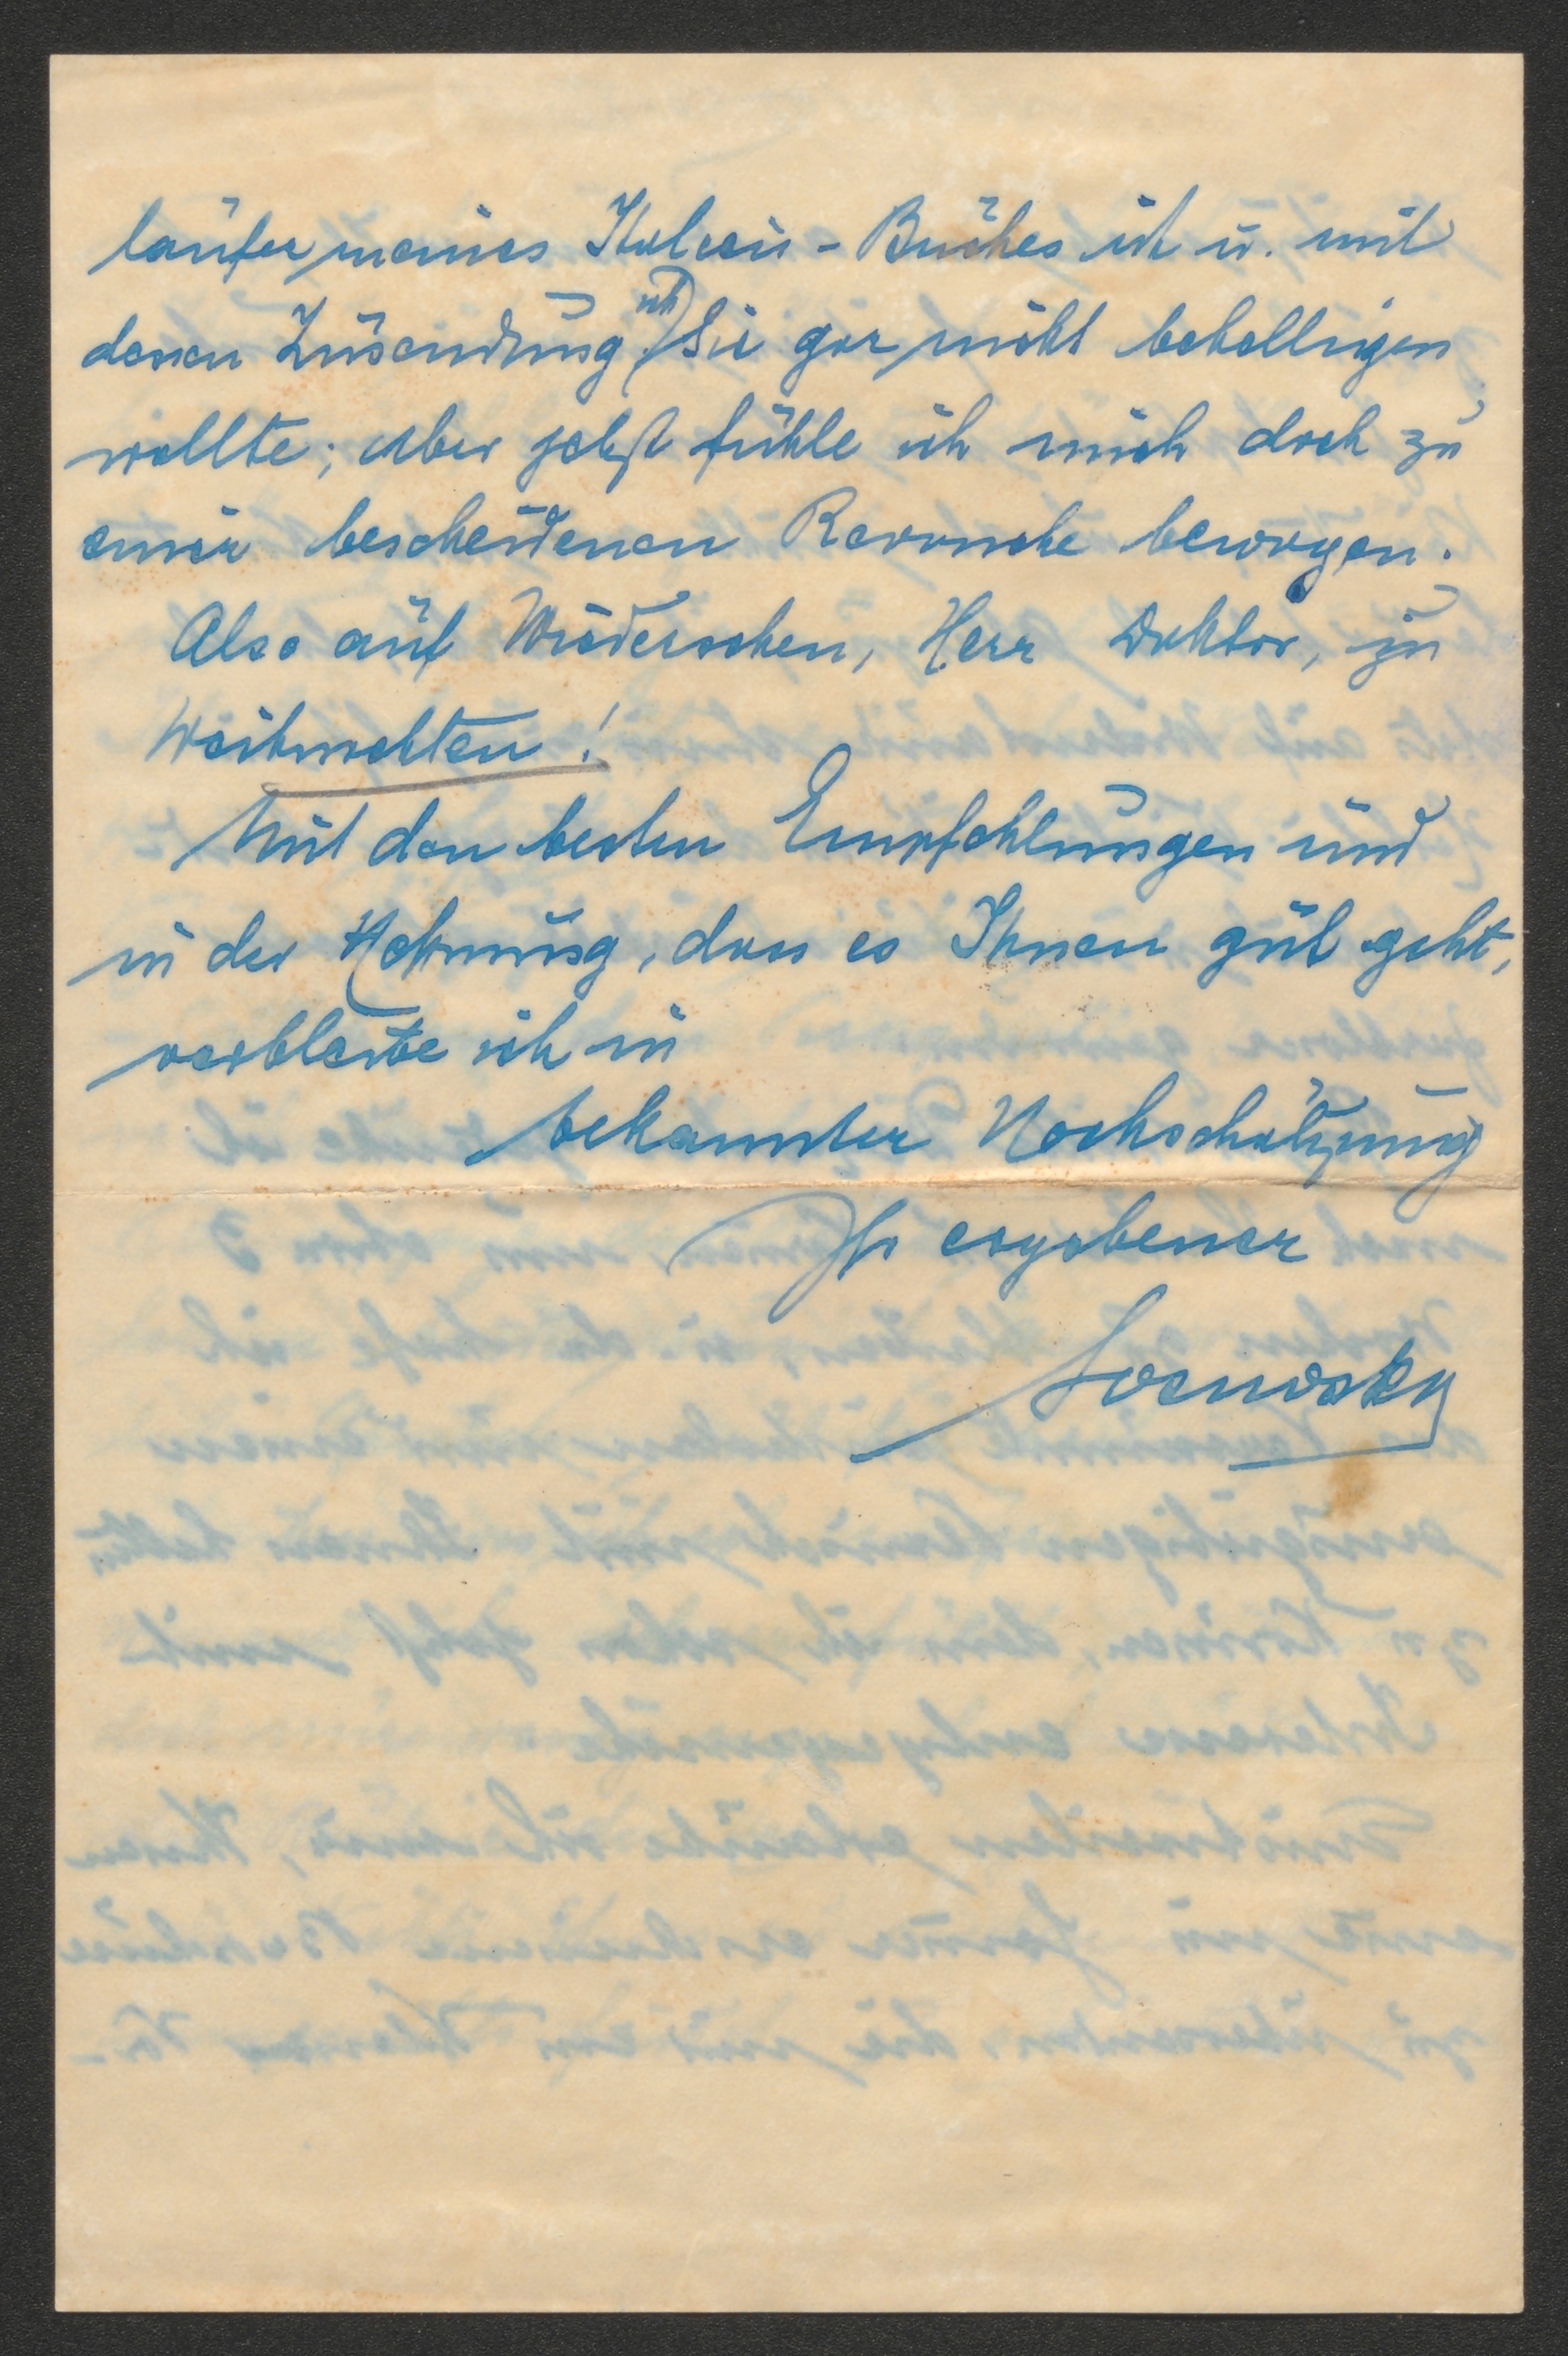 läufer meines Italien-Buches ist u. mit
deren Zusendung ich Sie gar nicht behelligen
wollte; aber jetzt fühle ich mich doch zu
einer bescheidenen Revanche bewogen.
Also auf Wiedersehen, Herr Doktor, zu
Weihnachten!
Mit den besten Empfehlungen und
in der Hoffnung, dass es Ihnen gut geht,
verbleibe ich in
bekannter Hochschätzung
Ihr ergebener